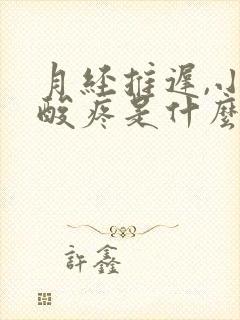 月经推遲,小
酸疼是什麼
許鑫